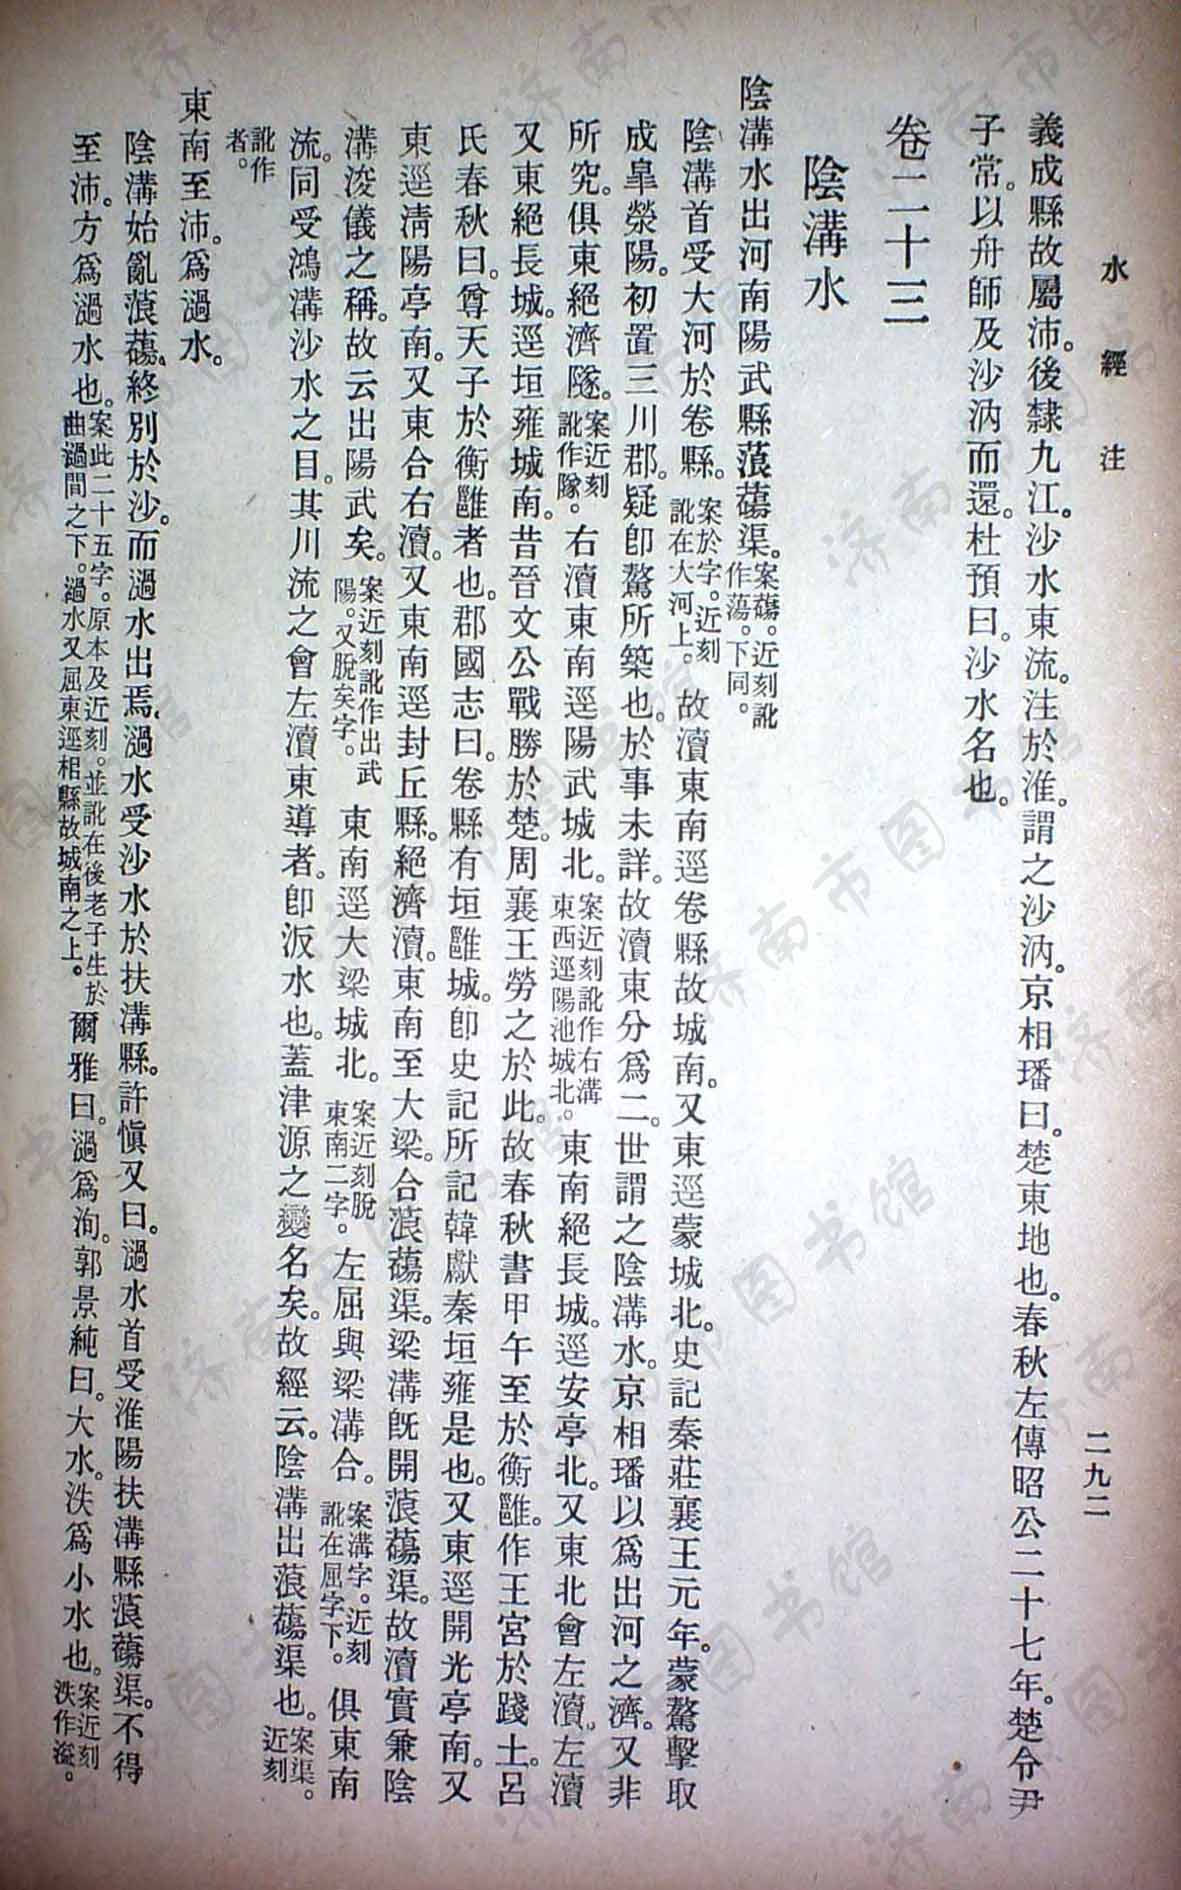 水經注
二九二
義成縣故屬沛。後隸九江。沙水東流。注於淮。謂之沙汭。京相璠曰。楚東地也。春秋左傳昭公二十七年。楚令尹
子常。以舟師及沙汭而還。杜預曰。沙水名也。
卷二十三
陰溝水
陰溝水出河南陽武縣蒗蕩渠。案蕩。近刻訛作蕩。下同。
陰溝首受大河於卷縣。案於字。近刻訛在大河上。故瀆東南逕卷縣故城南。又東逕蒙城北。史記秦莊襄王元年。蒙驁擊取
成皐滎陽。初置三川郡。疑卽驁所築也。於事未詳。故瀆東分爲二。世謂之陰溝水。京相璠以爲出河之濟。又非
所究。俱東絕濟隧。案近刻訛作隊。右瀆東南逕陽武城北。案近刻訛作右溝東西逕陽池城北。東南絕長城。逕安亭北。又東北會左瀆。左瀆
又東絕長城。逕垣雍城南。昔晉文公戰勝於楚。周襄王勞之於此。故春秋書甲午至於衡雝。作王宮於踐土。呂
氏春秋曰。尊天子於衡雝者也。郡國志曰。卷縣有垣雝城。卽史記所記韓獻秦垣雍是也。又東逕開光亭南。又
東逕淸陽亭南。又東合右瀆。又東南逕封丘縣。絕濟瀆。東南至大梁。合蒗蕩渠。梁溝旣開蒗蕩渠。故瀆實兼陰
溝浚儀之稱。故云出陽武矣。案近刻訛作出武陽。又脫矣字。東南逕大梁城北。案近刻脫東南二字。左屈與梁溝合。案溝字。近刻訛在屈字下。俱東南
流。同受鴻溝沙水之目。其川流之會左瀆東導者。卽汳水也。蓋津源之變名矣。故經云。陰溝出蒗蕩渠也。案渠。近刻
訛作者。
東南至沛。爲濄水。
陰溝始亂蒗蕩。終別於沙。而濄水出焉。濄水受沙水於扶溝縣。許愼又曰。濄水首受淮陽扶溝縣蒗蕩渠。不得
至沛。方爲濄水也。案此二十五字。原本及近刻。並訛在後老子生於曲濄間之下。濄水又屈東逕相縣故城南之上。爾雅曰。濄爲洵。郭景純曰。大水。泆爲小水也。案近刻泆作溢。